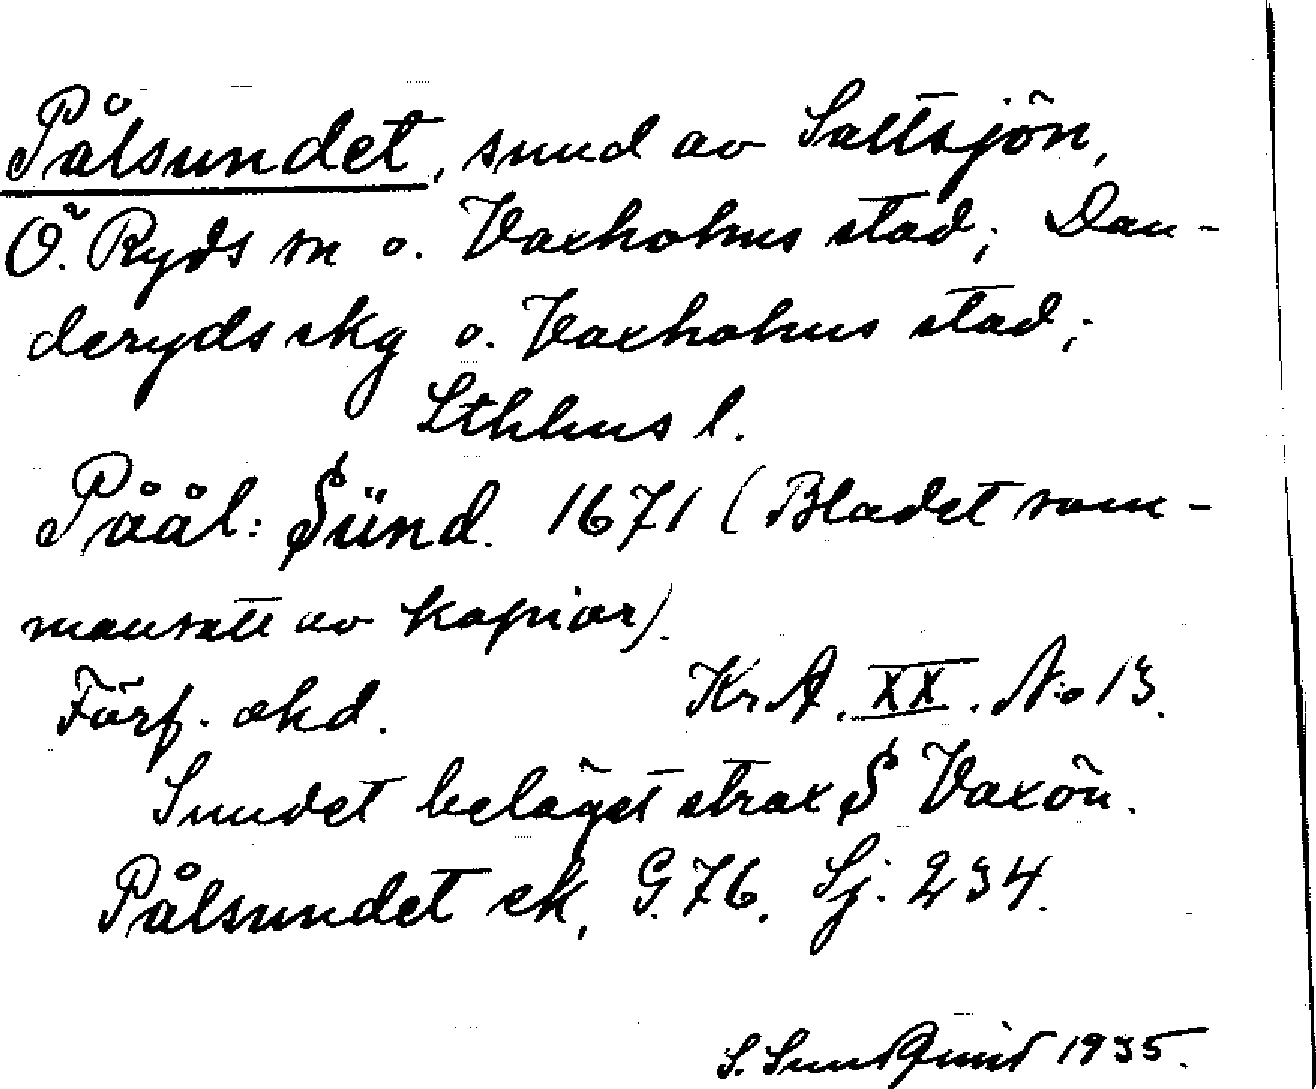 Pålsundet, sund av Saltsjön,
Ö. Ryds sn o. Vaxholms stad; Dan-
deryds skg o. Vaxholms stad;
Sthlms l.
Påål: Sünd. 1671 (Bladet sam-
mansatt av kopior).
Förf. okd. KrA. XX. No 13.
Sundet beläget strax S Vaxön.
Pålsundet ek, G. 76. Sj. 234.
S. Sundquist 1935.